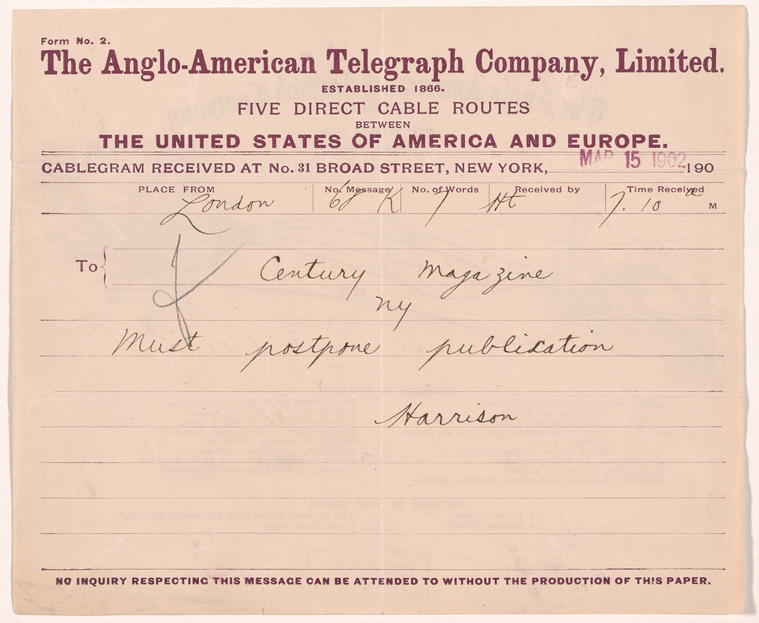 Form No. 2.
The Anglo-American Telegraph Company, Limited.
ESTABLISHED 1866.
FIVE DIRECT CABLE ROUTES
BETWEEN
THE UNITED STATES OF AMERICA AND EUROPE.
CABLEGRAM RECEIVED AT No. 31 BROAD STREET, NEW YORK, MAR 15 1902 190
PLACE FROM No. Message No. of Words Received by Time Received
London 68 K 7 Ht 7.10 a M
To Century Magazine
ny
Must postpone publication
Harrison
NO INQUIRY RESPECTING THIS MESSAGE CAN BE ATTENDED TO WITHOUT THE PRODUCTION OF THIS PAPER.